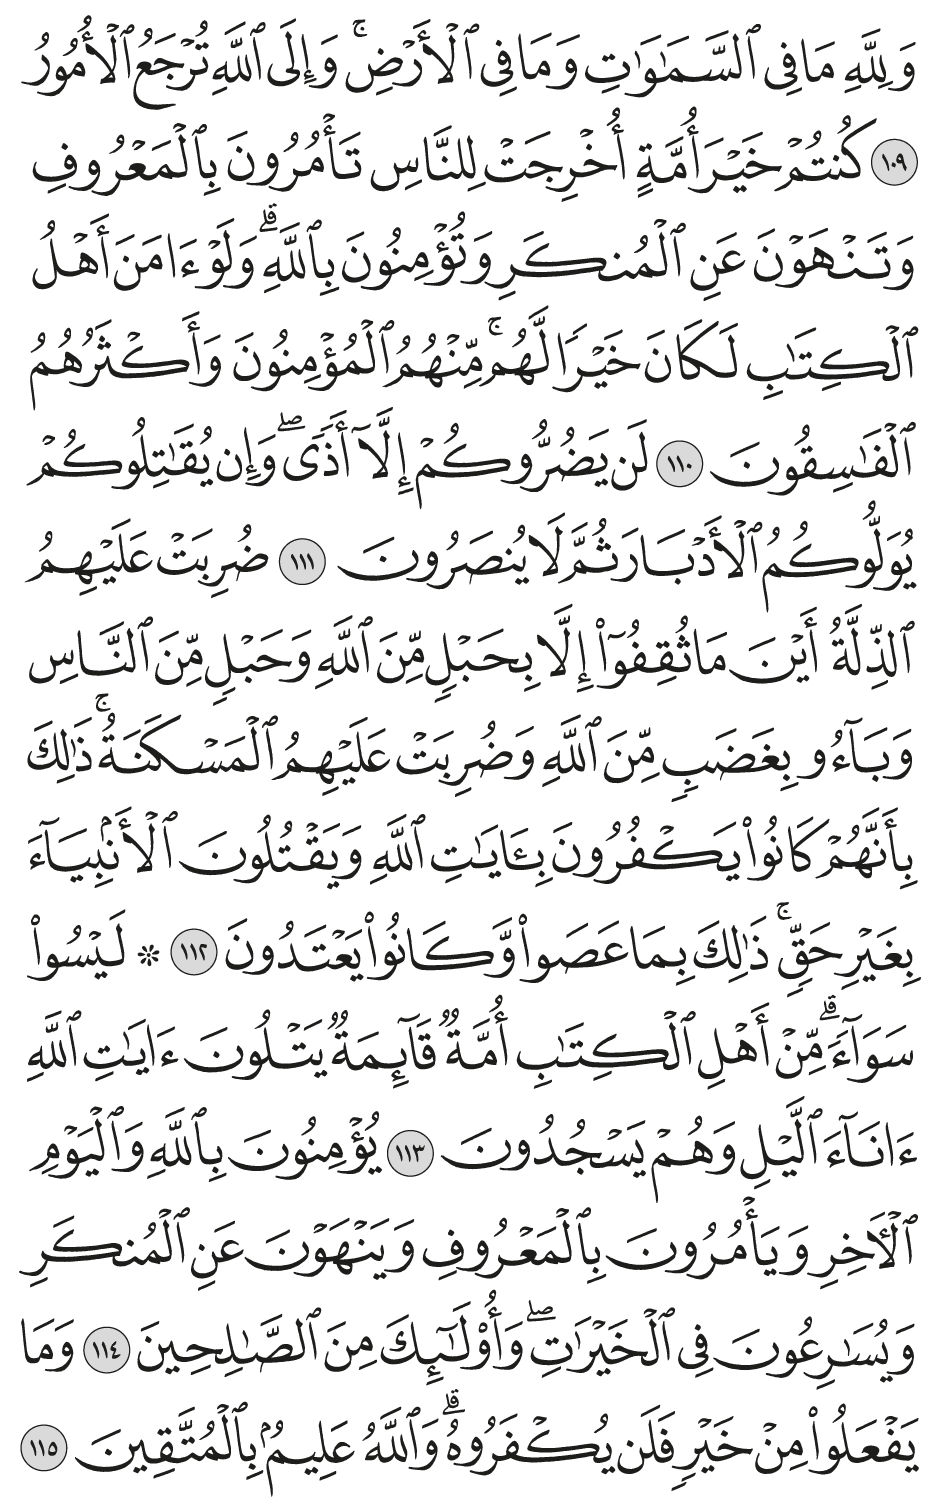 وَلِلَّهِ مَا فِي ٱلسَّمَٰوَٰتِ وَمَا فِي ٱلۡأَرۡضِۚ وَإِلَى ٱللَّهِ تُرۡجَعُ ٱلۡأُمُورُ
١٠٩ كُنتُمۡ خَيۡرَ أُمَّةٍ أُخۡرِجَتۡ لِلنَّاسِ تَأۡمُرُونَ بِٱلۡمَعۡرُوفِ
وَتَنۡهَوۡنَ عَنِ ٱلۡمُنكَرِ وَتُؤۡمِنُونَ بِٱللَّهِۗ وَلَوۡ ءَامَنَ أَهۡلُ
ٱلۡكِتَٰبِ لَكَانَ خَيۡرٗا لَّهُمۚ مِّنۡهُمُ ٱلۡمُؤۡمِنُونَ وَأَكۡثَرُهُمُ
ٱلۡفَٰسِقُونَ ١١٠ لَن يَضُرُّوكُمۡ إِلَّآ أَذٗىۖ وَإِن يُقَٰتِلُوكُمۡ
يُوَلُّوكُمُ ٱلۡأَدۡبَارَ ثُمَّ لَا يُنصَرُونَ ١١١ ضُرِبَتۡ عَلَيۡهِمُ
ٱلذِّلَّةُ أَيۡنَ مَا ثُقِفُوٓاْ إِلَّا بِحَبۡلٖ مِّنَ ٱللَّهِ وَحَبۡلٖ مِّنَ ٱلنَّاسِ
وَبَآءُو بِغَضَبٖ مِّنَ ٱللَّهِ وَضُرِبَتۡ عَلَيۡهِمُ ٱلۡمَسۡكَنَةُۚ ذَٰلِكَ
بِأَنَّهُمۡ كَانُواْ يَكۡفُرُونَ بِـَٔايَٰتِ ٱللَّهِ وَيَقۡتُلُونَ ٱلۡأَنۢبِيَآءَ
بِغَيۡرِ حَقّٖۚ ذَٰلِكَ بِمَا عَصَواْ وَّكَانُواْ يَعۡتَدُونَ ١١٢ ۞ لَيۡسُواْ
سَوَآءٗۗ مِّنۡ أَهۡلِ ٱلۡكِتَٰبِ أُمَّةٞ قَآئِمَةٞ يَتۡلُونَ ءَايَٰتِ ٱللَّهِ
ءَانَآءَ ٱلَّيۡلِ وَهُمۡ يَسۡجُدُونَ ١١٣ يُؤۡمِنُونَ بِٱللَّهِ وَٱلۡيَوۡمِ
ٱلۡأٓخِرِ وَيَأۡمُرُونَ بِٱلۡمَعۡرُوفِ وَيَنۡهَوۡنَ عَنِ ٱلۡمُنكَرِ
وَيُسَٰرِعُونَ فِي ٱلۡخَيۡرَٰتِۖ وَأُوْلَٰٓئِكَ مِنَ ٱلصَّٰلِحِينَ ١١٤ وَمَا
يَفۡعَلُواْ مِنۡ خَيۡرٖ فَلَن يُكۡفَرُوهُۗ وَٱللَّهُ عَلِيمُۢ بِٱلۡمُتَّقِينَ ١١٥